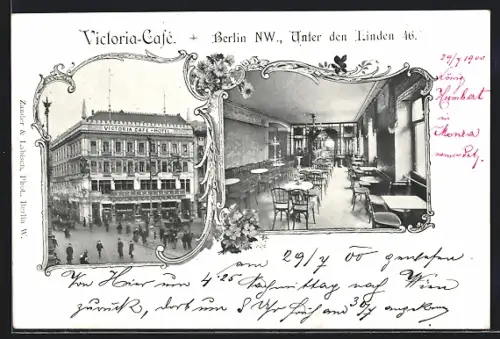 Victoria-Café. + Berlin NW., Unter den Linden 46.
29/7 1900
König
Humbert
in
Monza
VICTORIA CAFÉ - HOTEL
Zander & Labisch, Phot., Berlin W.
am 29/7 00 gewesen.
Von Hier um 4.25 Nachmittag nach Wien
zurück, dort um 8 Uhr früh am 30/7 angekom